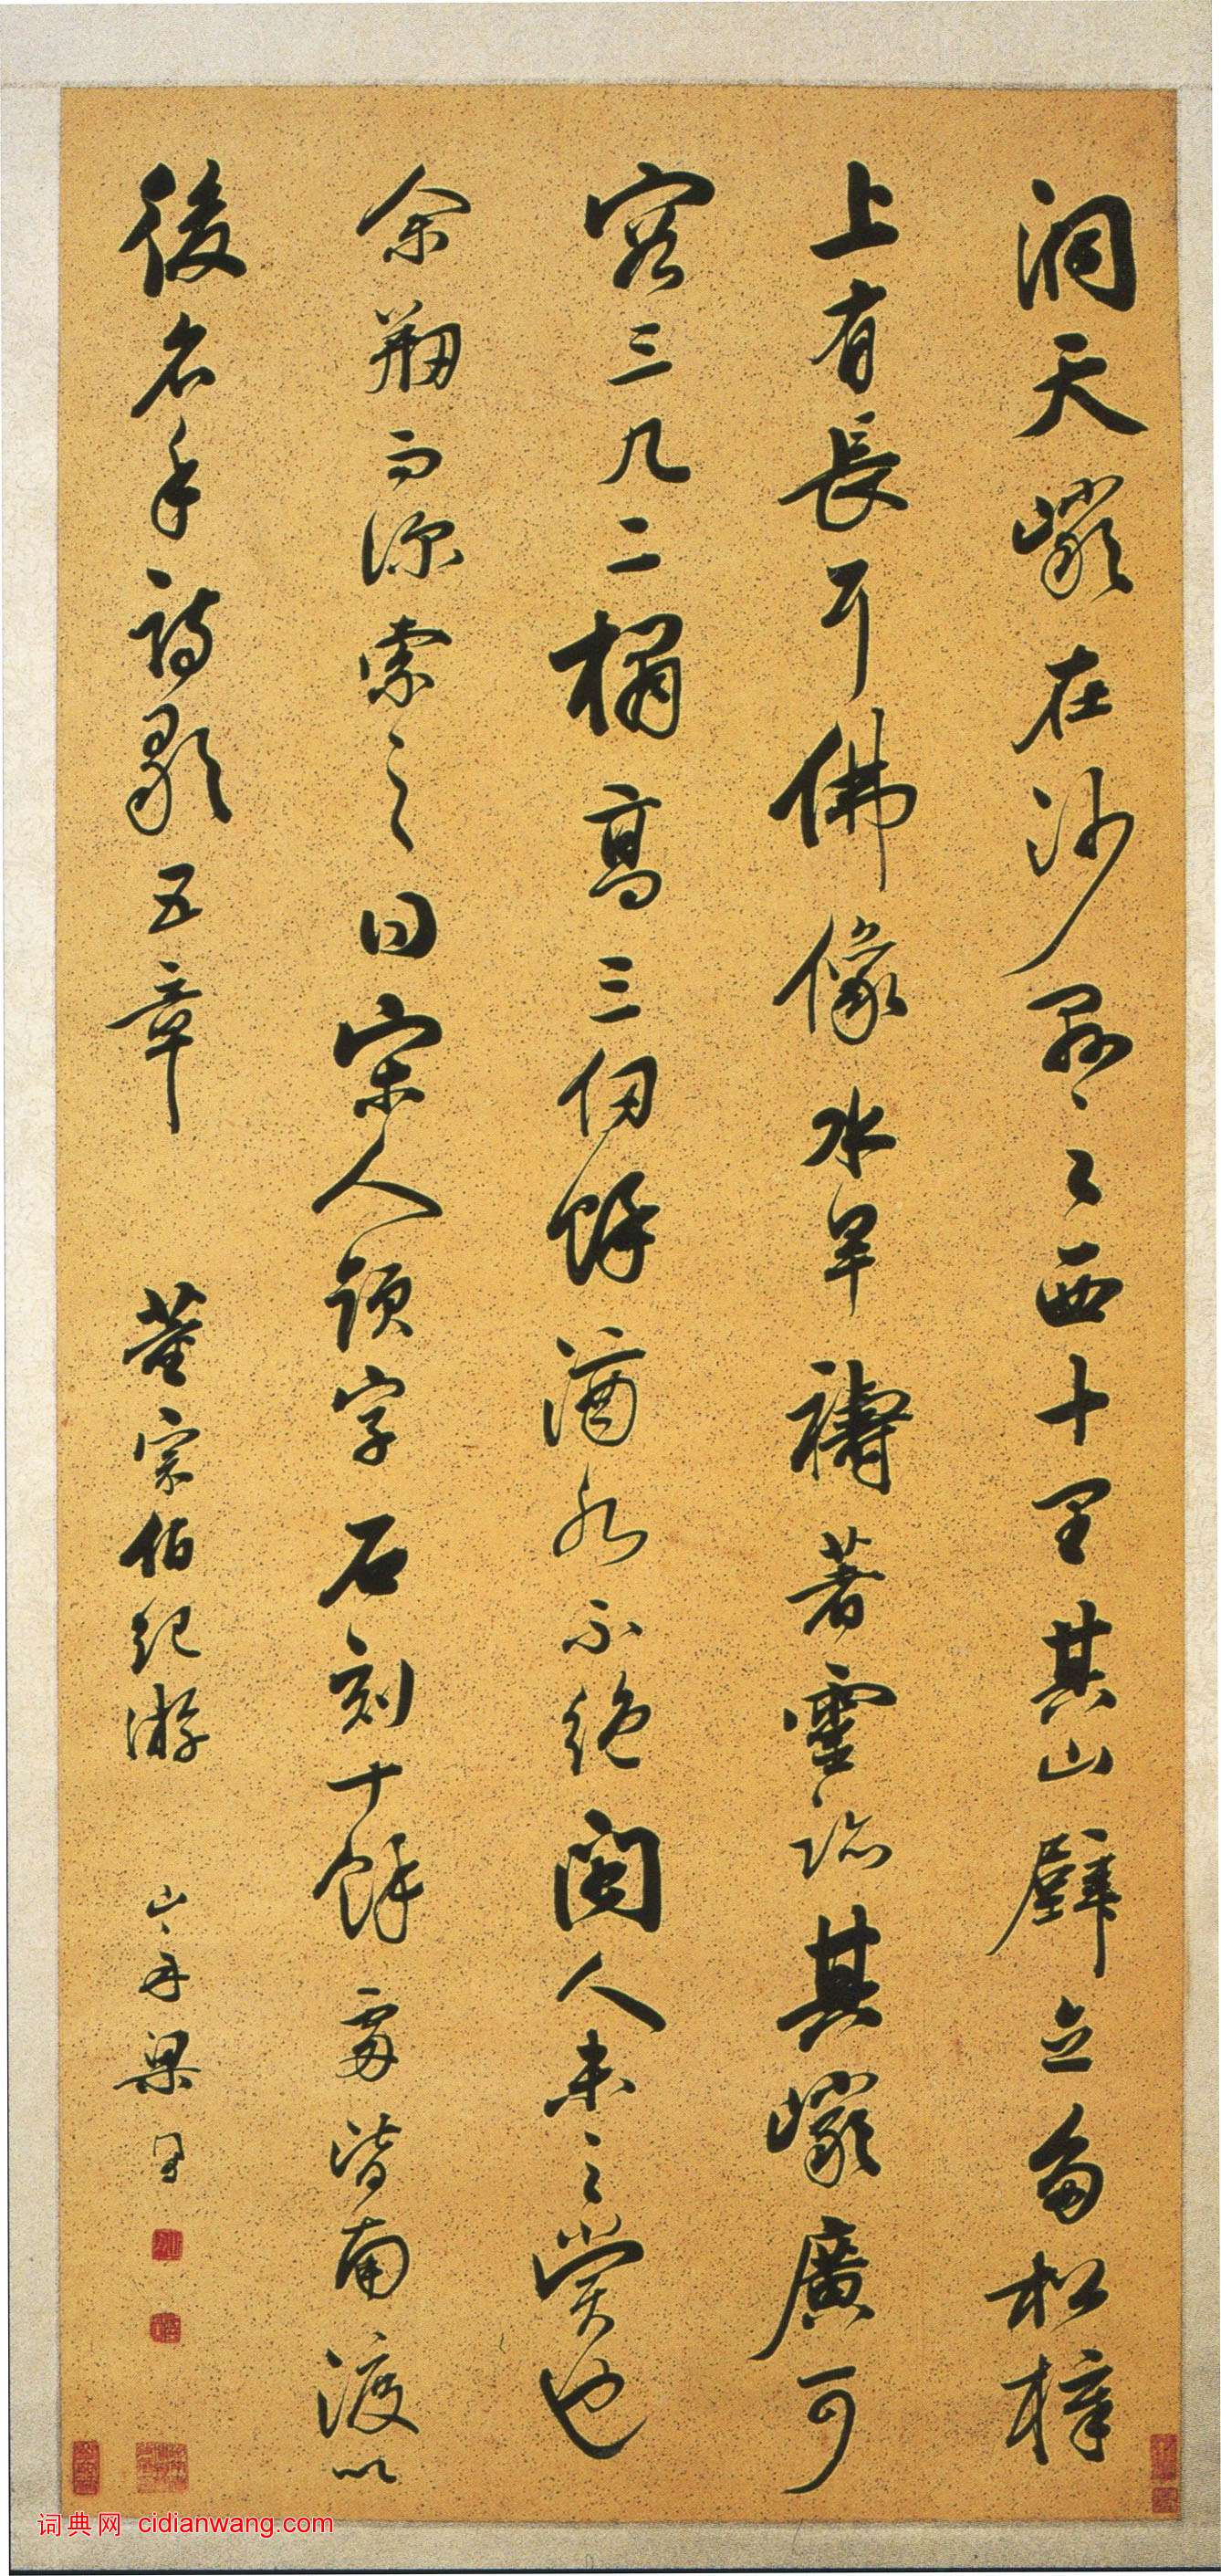 洞天巖在沙縣之西十里其山壁立多松樟
上有長耳佛像水旱禱著靈跡其巖廣可
容三几二榻高三仞餘滴水不絕閩人未之賞也
余創而深索之曰宋人題字石刻十餘處皆南渡以
後名手詩歌五章 董宗伯紀游 山舟梁同書
词典网 cidianwang.com